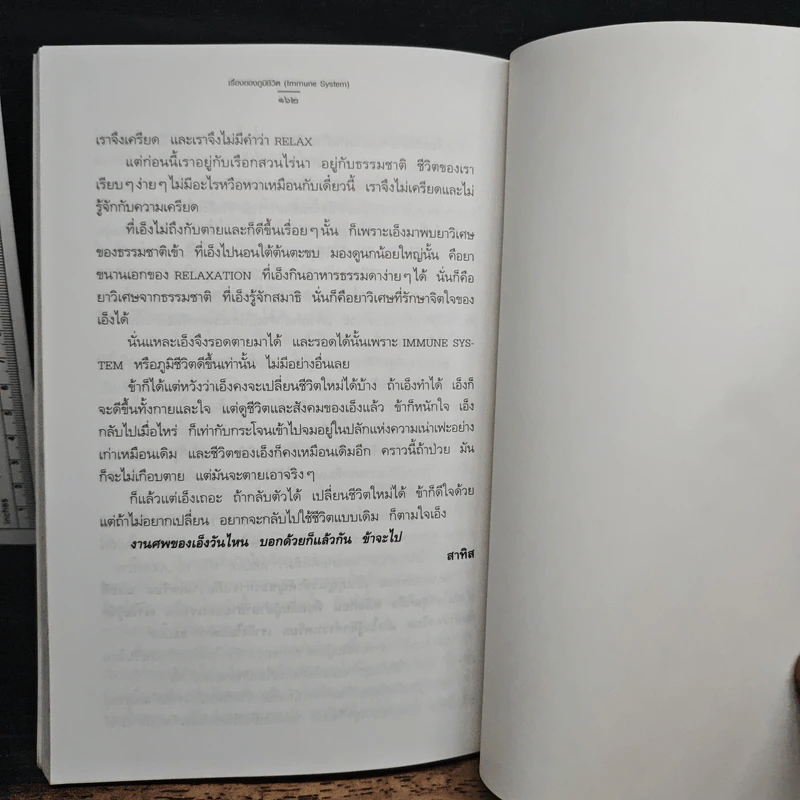 เรื่องของภูมิชีวิต (Immune System)
๑๖๒
เราจึงเครียด และเราจึงไม่มีคำว่า RELAX
แต่ก่อนนี้เราอยู่กับเรือกสวนไร่นา อยู่กับธรรมชาติ ชีวิตของเรา
เรียบๆ ง่ายๆ ไม่มีอะไรหวือหวาเหมือนกับเดี๋ยวนี้ เราจึงไม่เครียดและไม่
รู้จักกับความเครียด
ที่เอ็งไม่ถึงกับตายและก็ดีขึ้นเรื่อยๆ นั้น ก็เพราะเอ็งมาพบยาวิเศษ
ของธรรมชาติเข้า ที่เอ็งไปนอนใต้ต้นตะขบ มองดูนกน้อยใหญ่นั้น คือยา
ขนานเอกของ RELAXATION ที่เอ็งกินอาหารธรรมดาง่ายๆ ได้ นั่นก็คือ
ยาวิเศษจากธรรมชาติ ที่เอ็งรู้จักสมาธิ นั่นก็คือยาวิเศษที่รักษาจิตใจของ
เอ็งได้
นั่นแหละเอ็งจึงรอดตายมาได้ และรอดได้นั้นเพราะ IMMUNE SYS-
TEM หรือภูมิชีวิตดีขึ้นเท่านั้น ไม่มีอย่างอื่นเลย
ข้าก็ได้แต่หวังว่าเอ็งคงจะเปลี่ยนชีวิตใหม่ได้บ้าง ถ้าเอ็งทำได้ เอ็งก็
จะดีขึ้นทั้งกายและใจ แต่ดูชีวิตและสังคมของเอ็งแล้ว ข้าก็หนักใจ เอ็ง
กลับไปเมื่อไหร่ ก็เท่ากับกระโจนเข้าไปจมอยู่ในปลักแห่งความเน่าเฟะอย่าง
เก่าเหมือนเดิม และชีวิตของเอ็งก็คงเหมือนเดิมอีก คราวนี้ถ้าป่วย มัน
ก็จะไม่เกือบตาย แต่มันจะตายเอาจริงๆ
ก็แล้วแต่เอ็งเถอะ ถ้ากลับตัวได้ เปลี่ยนชีวิตใหม่ได้ ข้าก็ดีใจด้วย
แต่ถ้าไม่อยากเปลี่ยน อยากจะกลับไปใช้ชีวิตแบบเดิม ก็ตามใจเอ็ง
งานศพของเอ็งวันไหน บอกด้วยก็แล้วกัน ข้าจะไป
สาทิส
inches